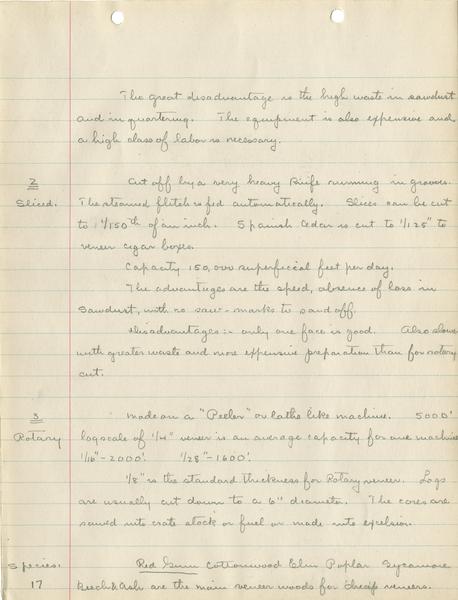 The great disadvantage is the high waste in sawdust
and in quartering. The equipment is also expensive and
a high class of labor is necessary.
2
Sliced.
Cut off by a very heavy knife running in grooves.
The steamed flitch is fed automatically. Slices can be cut
to 1/150th of an inch. Spanish Cedar is cut to 1/125" to
veneer cigar boxes.
Capacity 150,000 superficial feet per day.
The advantages are the speed, absence of loss in
sawdust, with no saw-marks to sand off.
Disadvantages:- only one face is good. Also slower
with greater waste and more expensive preparation than for rotary
cut.
3
Rotary
Made on a "Peeler" or lathe like machine. 5000'
logscale of 1/4" veneer is an average capacity for one machine
1/16"-2000'. 1/28"-1600'.
1/8" is the standard thickness for Rotary veneer. Logs
are usually cut down to a 6" diameter. The cores are
sawed into crate stock or fuel or made into excelsior.
Species:
17
Red Gum Cottonwood Elm Poplar Sycamore
Beech & Ash are the main veneer woods for cheap veneers.